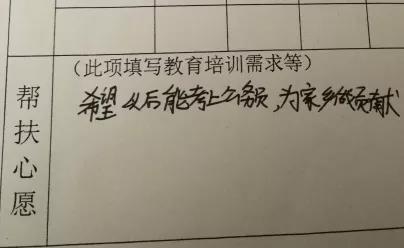 （此项填写教育培训需求等）
希望从后能考上公务员，为家乡做贡献
帮扶心愿